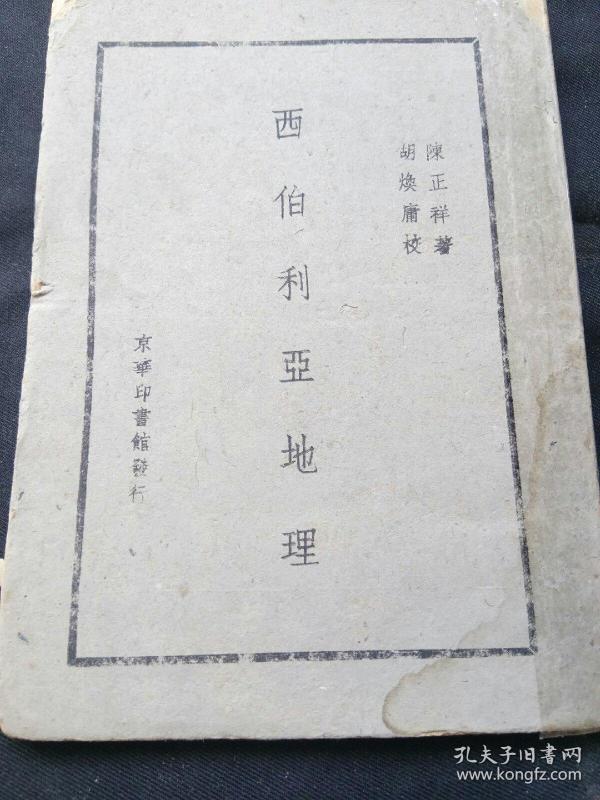 陳正祥著
胡煥庸校
西伯利亞地理
京華印書館發行
孔夫子旧书网
www.kongfz.com